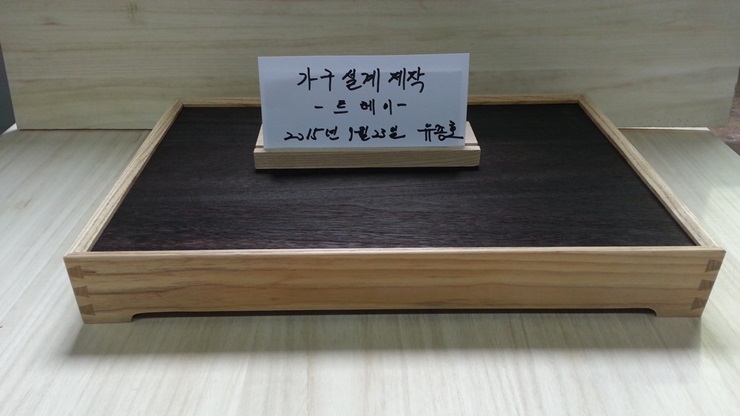 가구 설계 제작
- 트레이 -
2015년 9월 23일 유종호